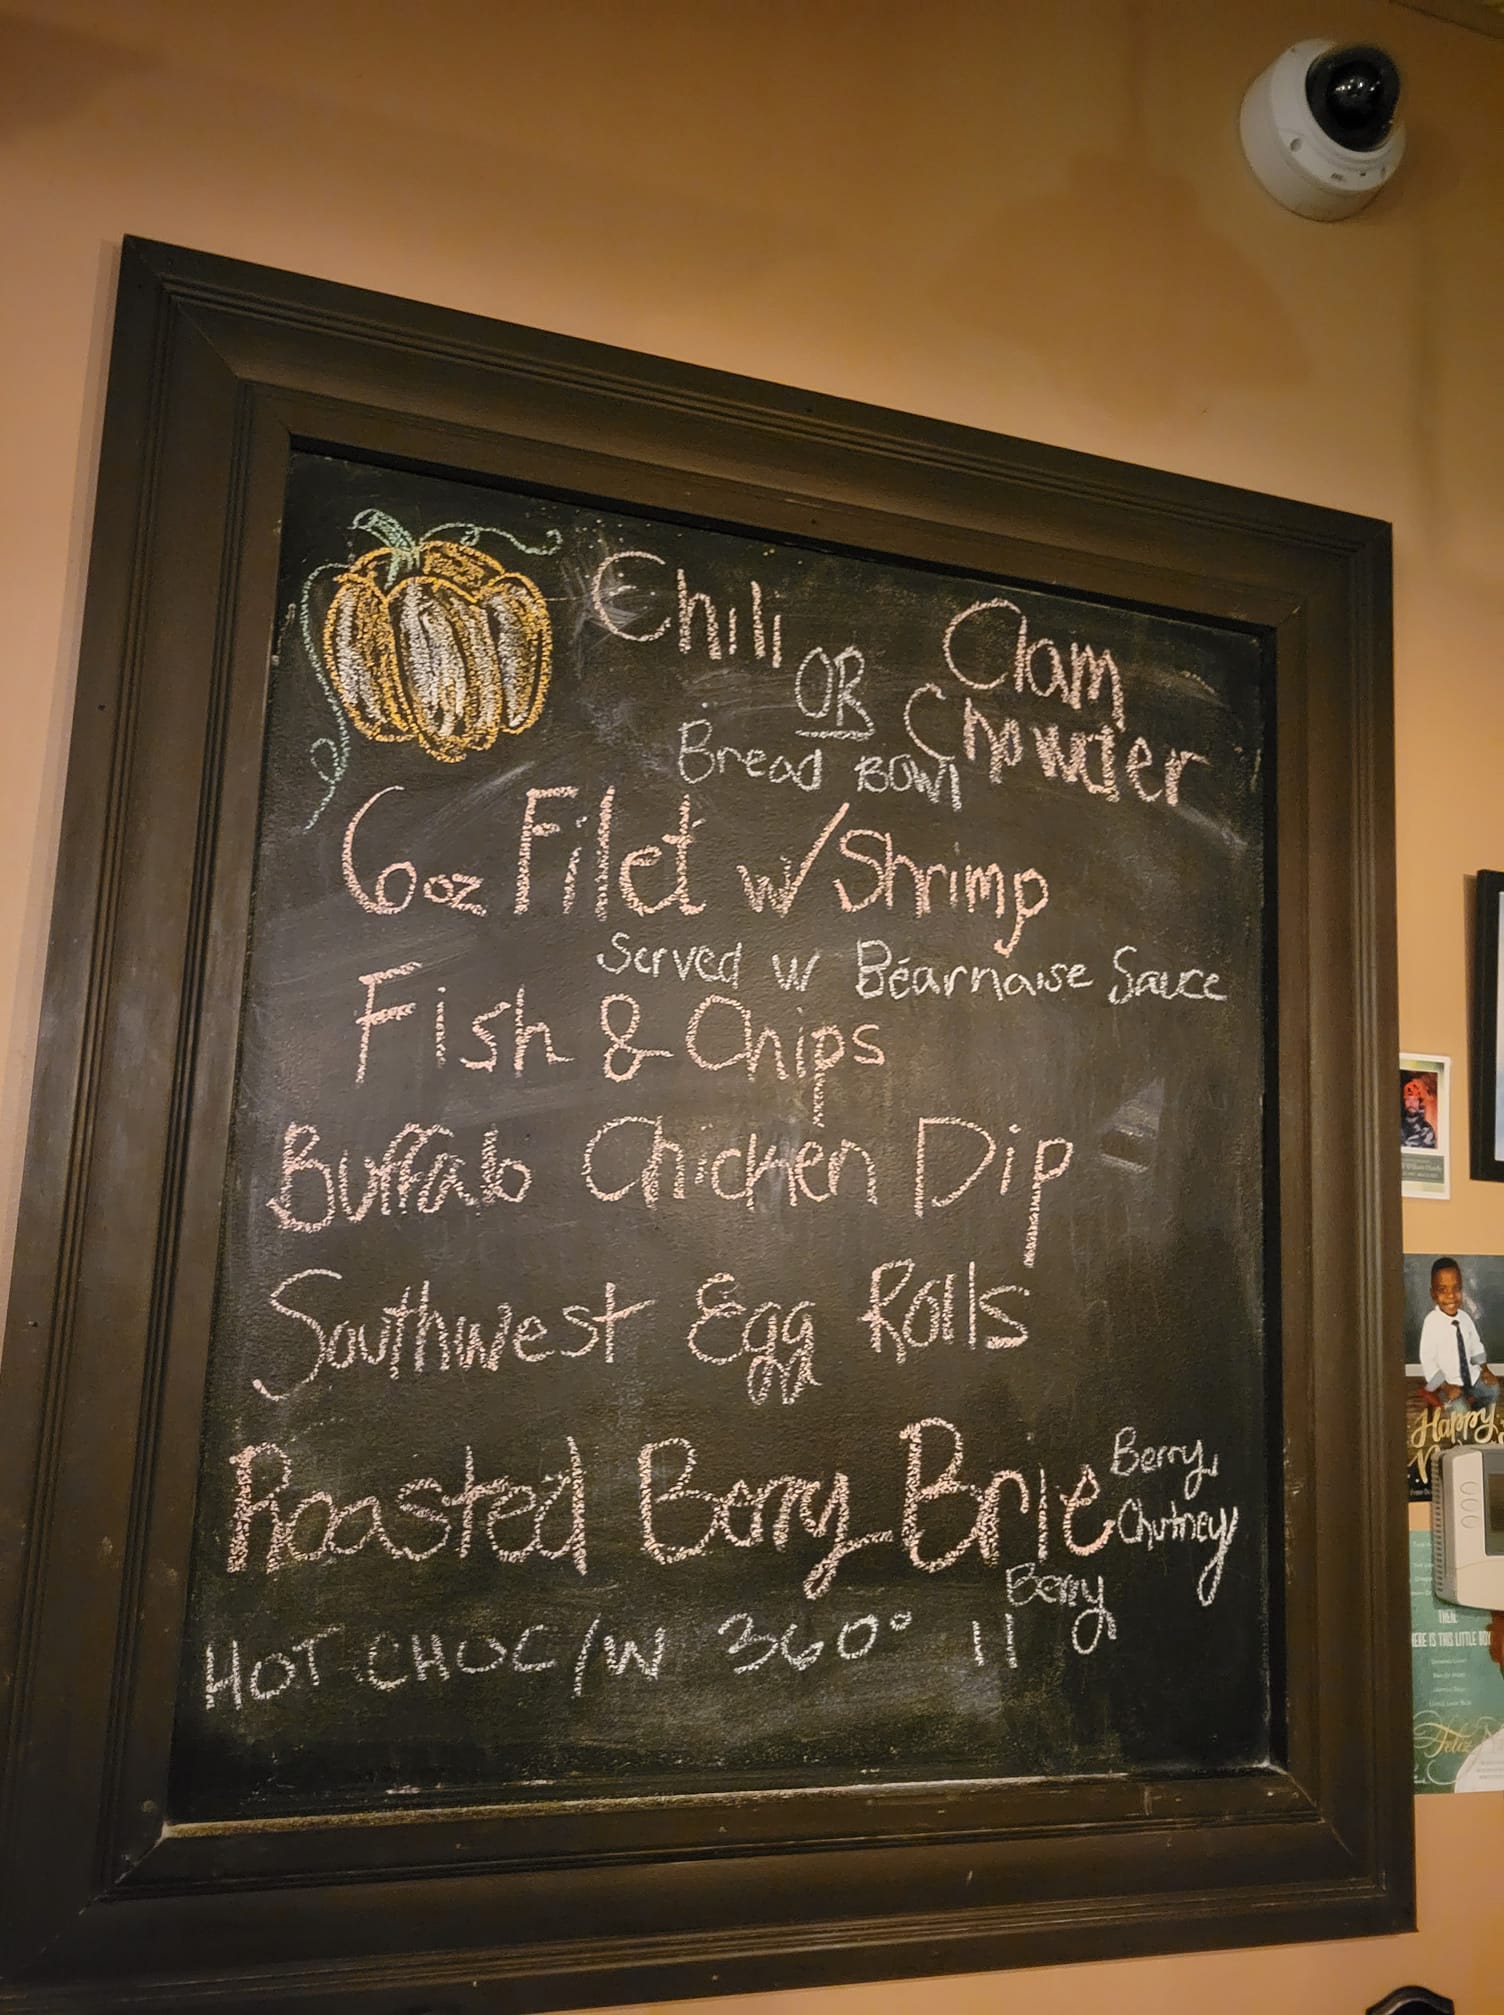 Chili OR Clam Chowder
Bread Bowl
6oz Filet w/ Shrimp
Served w Béarnaise Sauce
Fish & Chips
Buffalo Chicken Dip
Southwest Egg Rolls
Roasted Berry Brie Berry Chutney
Berry
HOT CHOC/W 360° 11
Happy
THEIR
HERE IS THIS LITTLE BOY
Feliz